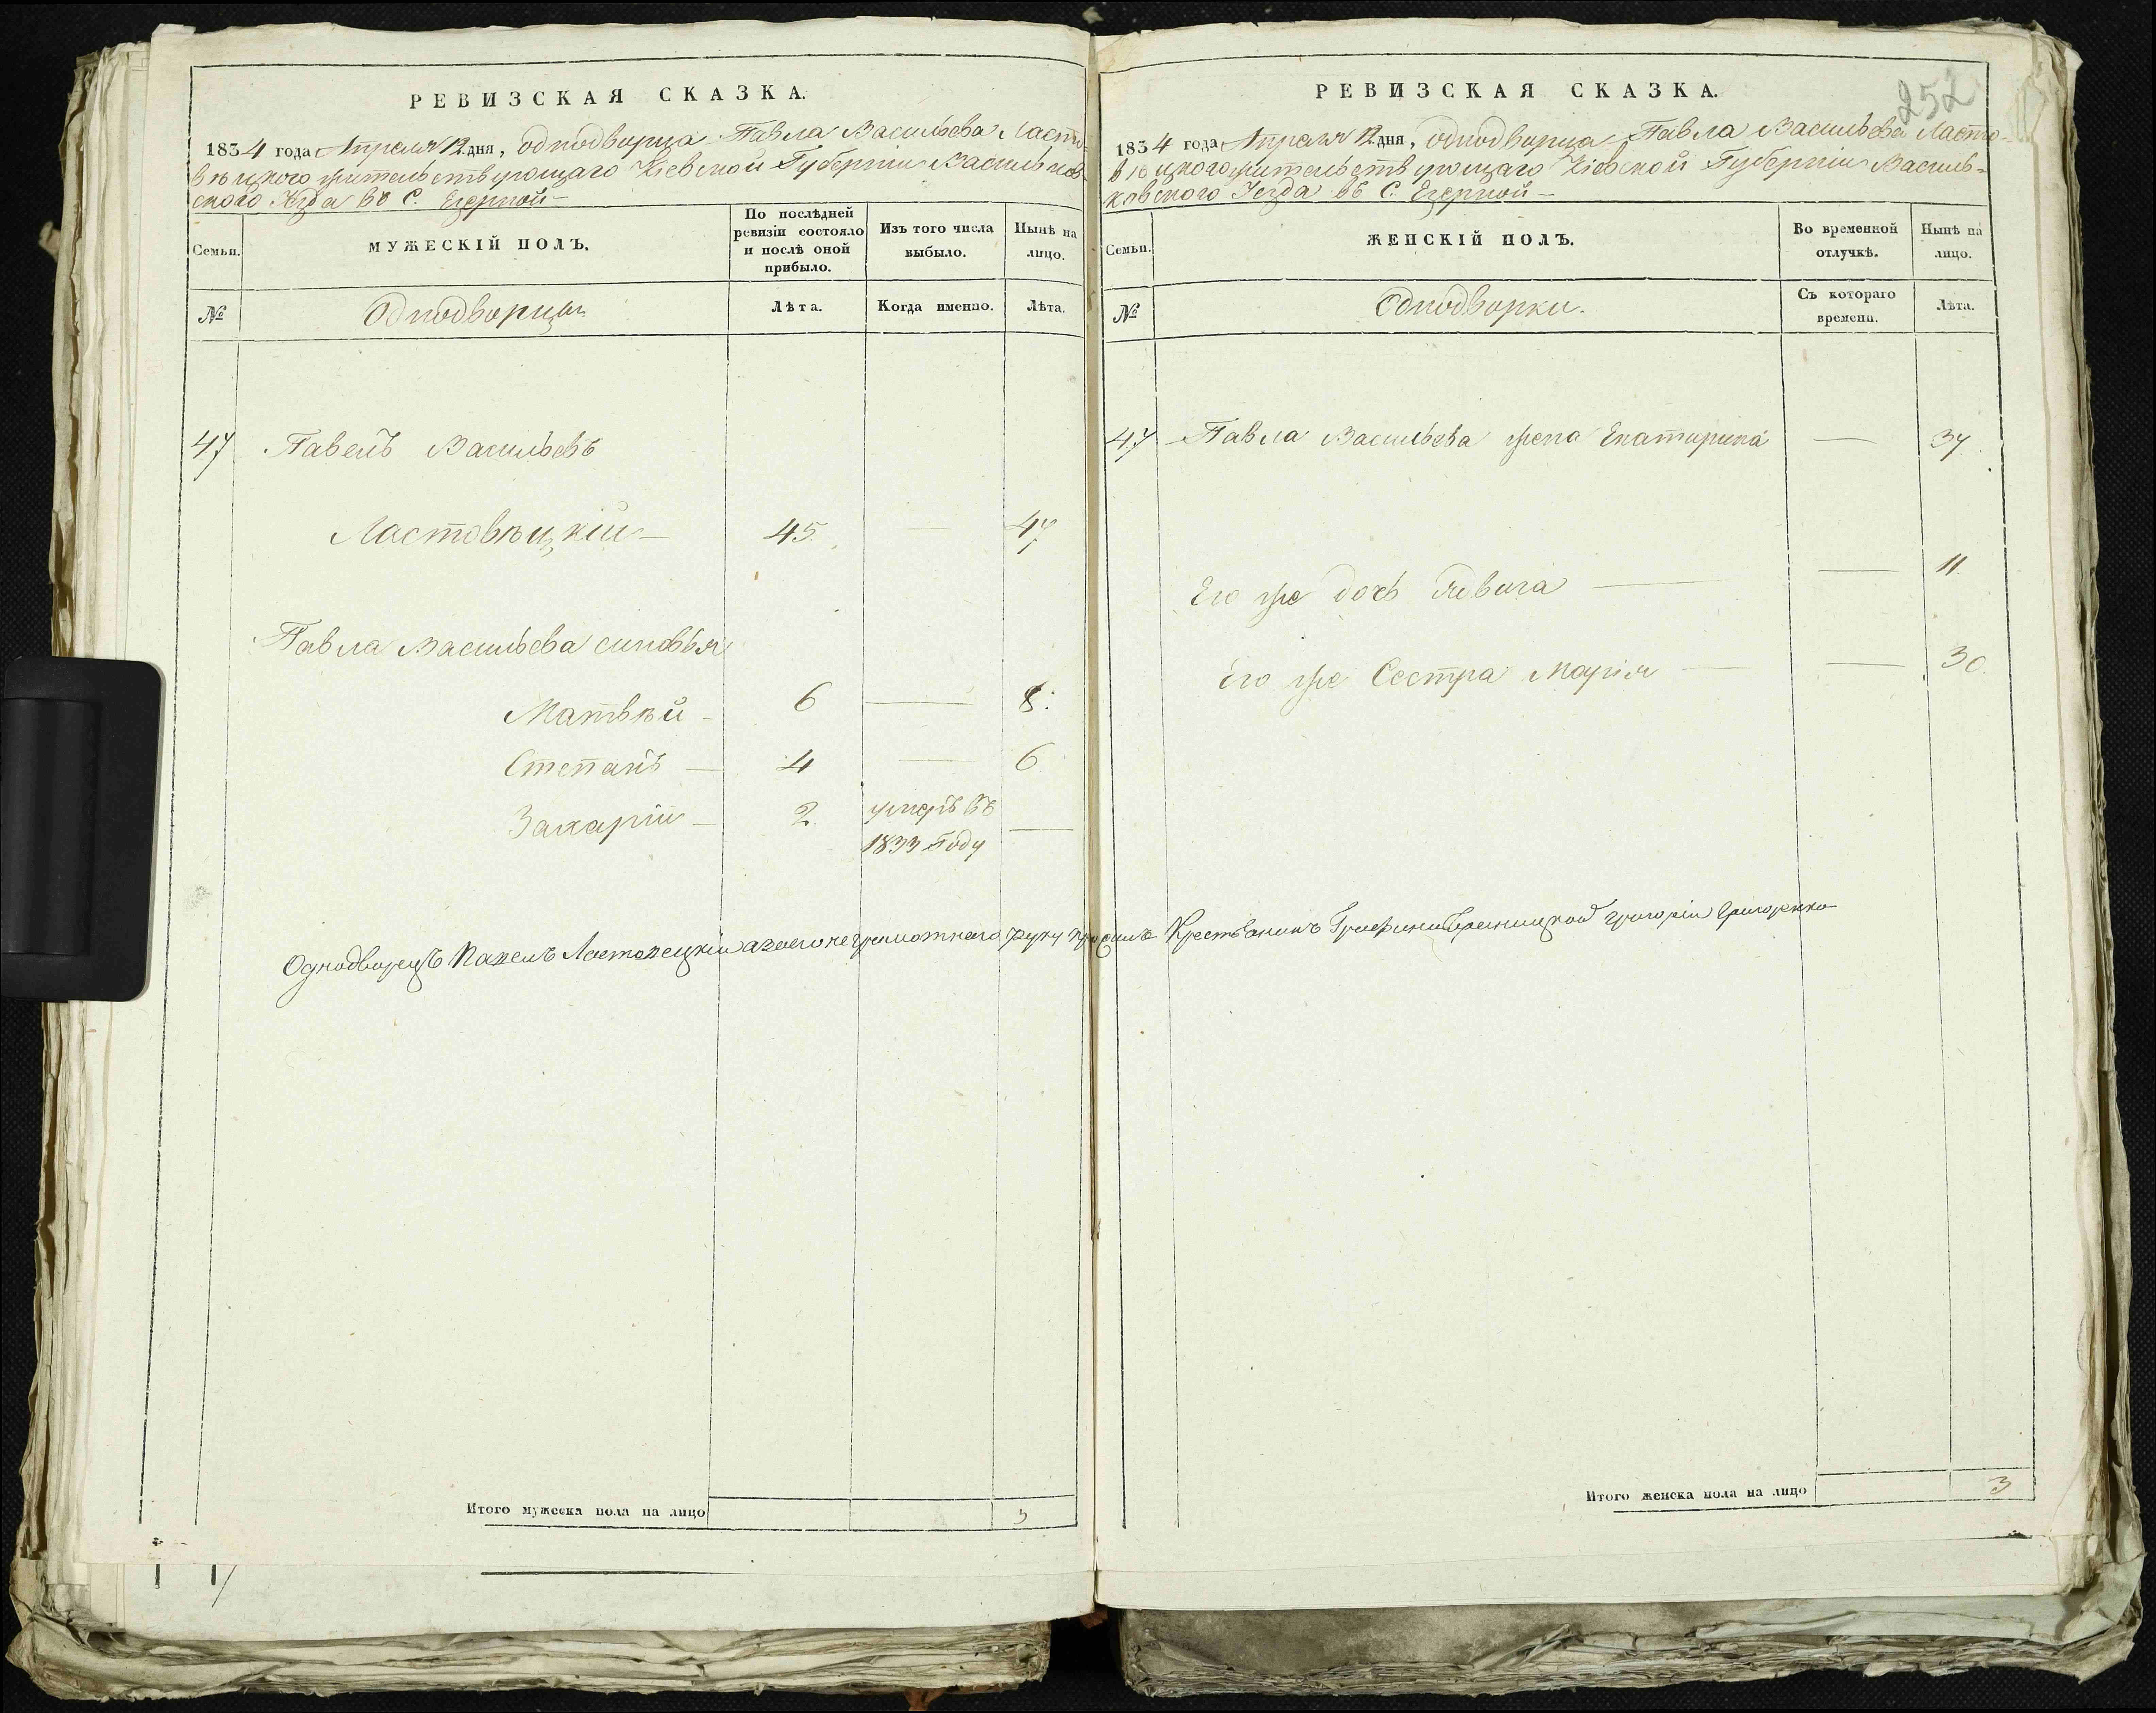 РЕВИЗСКАЯ СКАЗКА.
1834 года Апреля 12 дня, однодворца Павла Васильева Ласто-
вѣцкого жительствующаго Кіевской Губерніи Васильков-
ского Уезда въ С. Езерной
Семьи.
МУЖЕСКІЙ ПОЛЪ.
По послѣдней ревизіи состояло и послѣ оной прибыло.
Изъ того числа выбыло.
Нынѣ на лицо.
№
Однодворцы
Лѣта.
Когда именно.
Лѣта.
47 Павелъ Васильевъ
Ластовѣцкій — 45. 47
Павла Васильева сыновья
Матвѣй — 6 — 8.
Степанъ — 4 — 6
Захарій — 2. умеръ въ
1833 Году —
Однодворецъ Павелъ Ластовецкій а заего неграмотнаго руку приложилъ Крестьанинъ Графини Браницкой Григорій Григоренко
Итого мужеска пола на лицо 3
252
РЕВИЗСКАЯ СКАЗКА.
1834 года Апреля 12 дня, однодворца Павла Васильева Ласто-
вѣцкого жительствующаго Кіевской Губерніи Василь-
ковского Уезда въ С. Езерной —
Семьи.
ЖЕНСКІЙ ПОЛЪ.
Во временной отлучкѣ.
Нынѣ на лицо.
№
Однодворки.
Съ котораго времени.
Лѣта.
47 Павла Васильева жена Екатирина — 37
Его же дочь Ядвига — — 11.
Его же Сестра Марія — — 30.
Итого женска пола на лицо 3